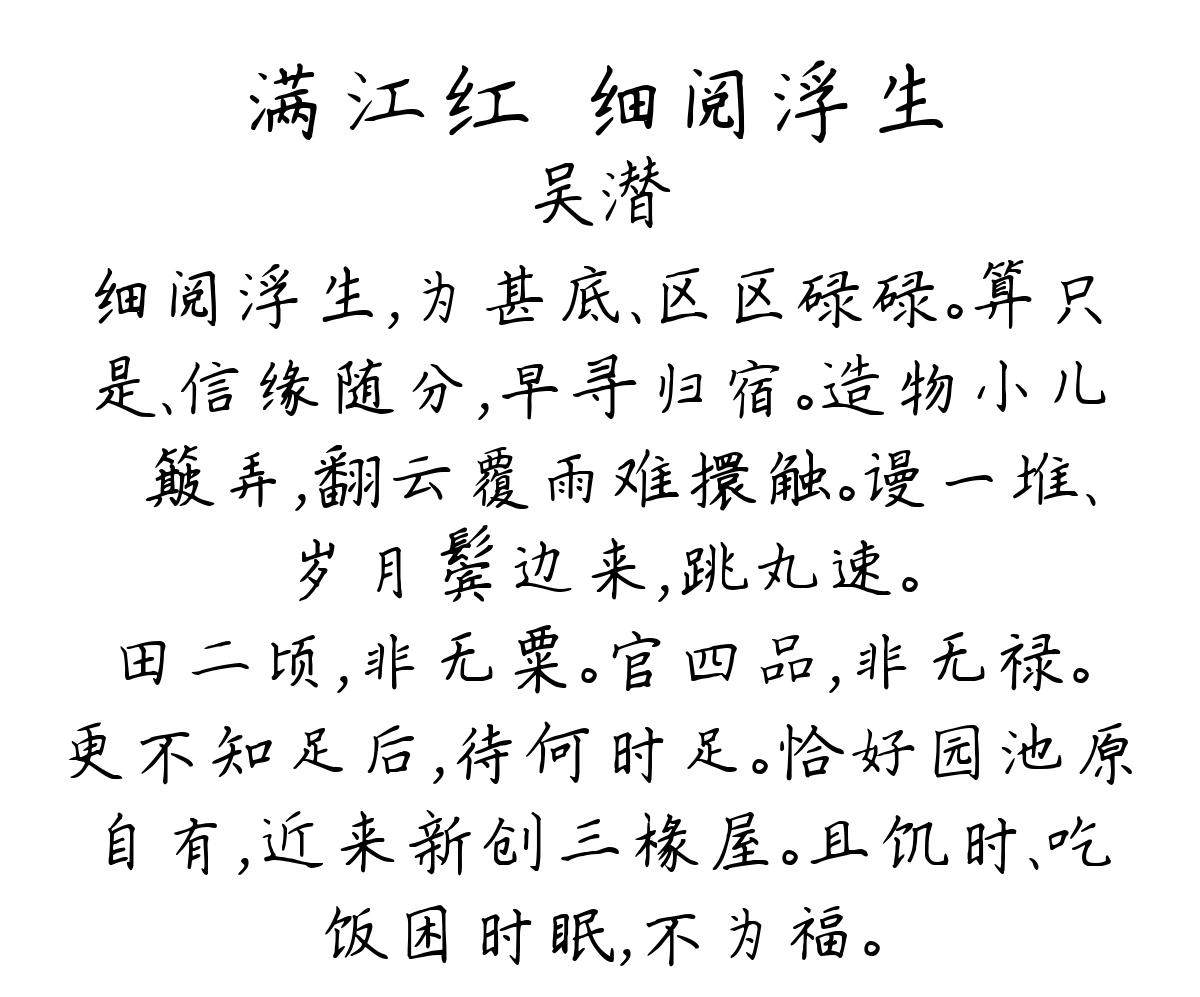 满江红 细阅浮生
吴潜
细阅浮生,为甚底、区区碌碌。算只
是、信缘随分,早寻归宿。造物小儿
簸弄,翻云覆雨难擐触。谩一堆、
岁月鬓边来,跳丸速。
田二顷,非无粟。官四品,非无禄。
更不知足后,待何时足。恰好园池原
自有,近来新创三椽屋。且饥时、吃
饭困时眠,不为福。